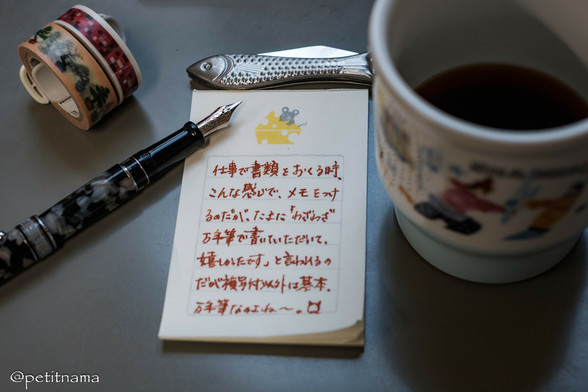 仕事で書類をおくる時、
こんな感じで、メモをつけ
るのだが、たまに「わざわざ
万年筆で書いていただいて、
嬉しかったです」と言われるの
だが複写付以外は基本、
万年筆なのよね〜。
@petitnama